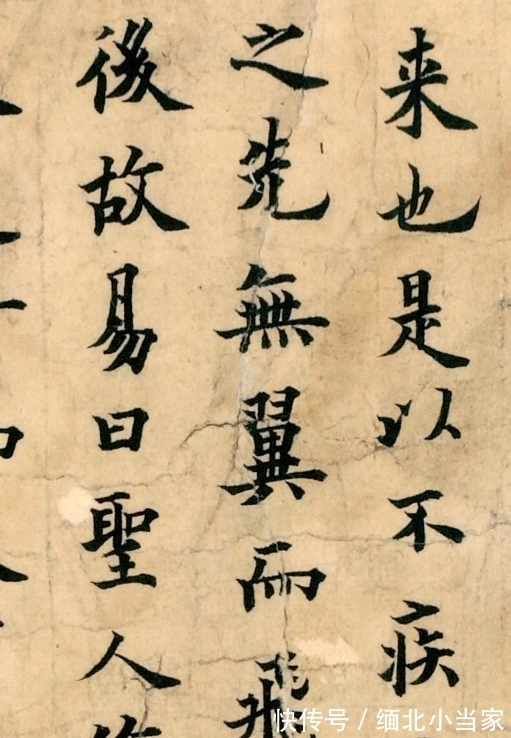 来也是以不疾
之先無翼而飛
後故易曰聖人
快传号 / 缅北小当家